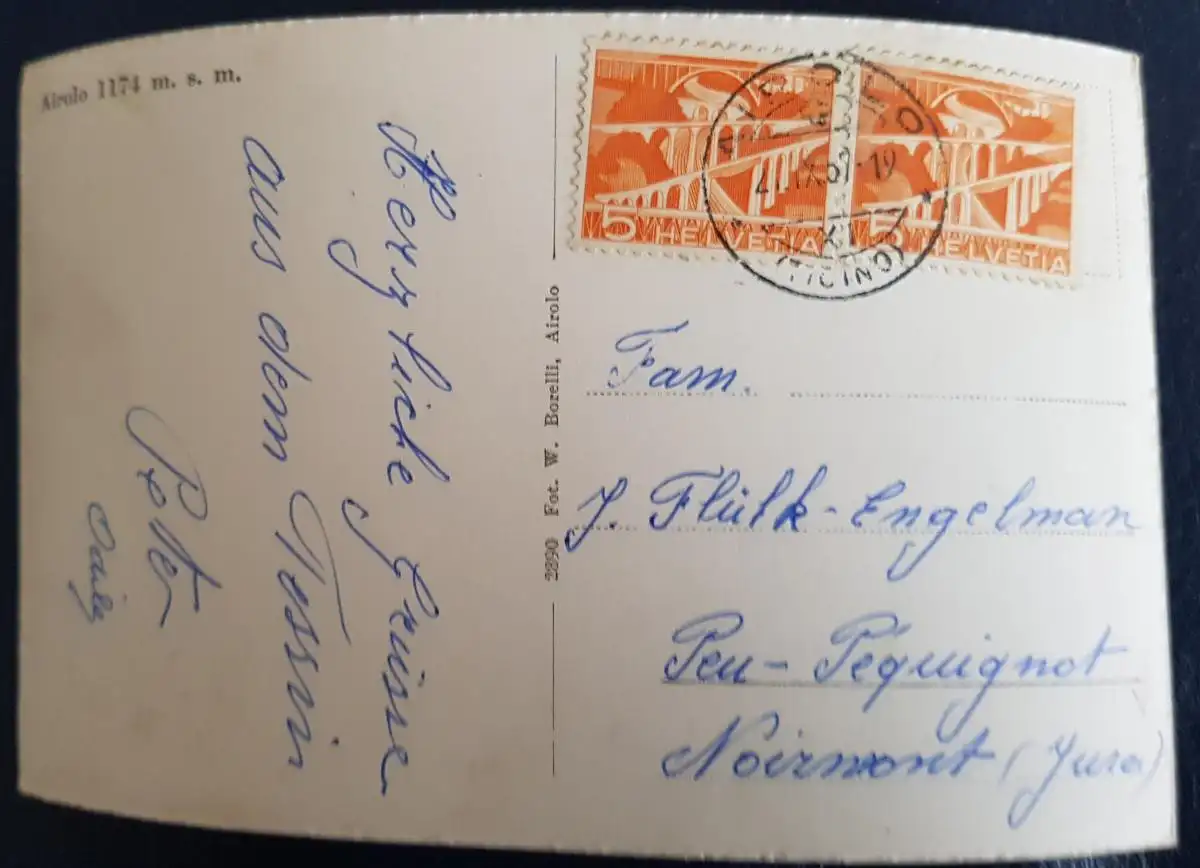 Airolo 1174 m. s. m.
Herzliche Grüsse
aus dem Tessin
2890 Fot. W. Borelli, Airolo
5 HELVETIA
5 HELVETIA
AIROLO
(TICINO)
Fam.
J. Flülk-Engelman
Peu-Péquignot
Noirmont (Jura)